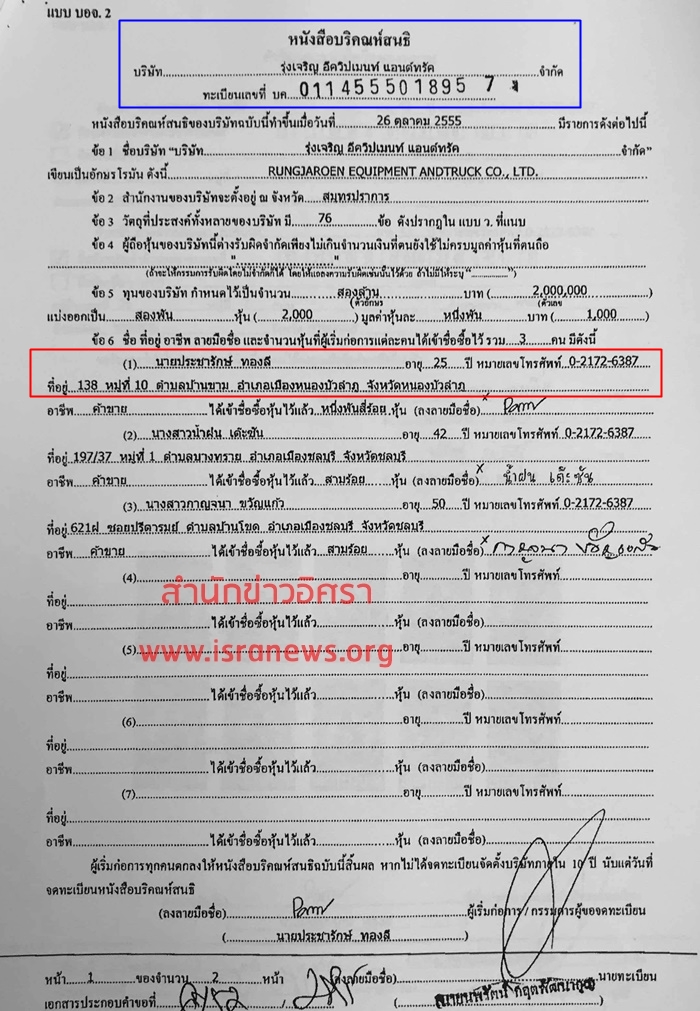 แบบ บอจ. 2
หนังสือบริคณห์สนธิ
บริษัท รุ่งเจริญ อีควิปเมนท์ แอนด์ทรัค จำกัด
ทะเบียนเลขที่ บค. 011455501895 7
หนังสือบริคณห์สนธิของบริษัทฉบับนี้ทำขึ้นเมื่อวันที่ 26 ตุลาคม 2555 มีรายการดังต่อไปนี้
ข้อ 1 ชื่อบริษัท "บริษัท รุ่งเจริญ อีควิปเมนท์ แอนด์ทรัค จำกัด"
เขียนเป็นอักษรโรมัน ดังนี้ RUNGJAROEN EQUIPMENT ANDTRUCK CO., LTD.
ข้อ 2 สำนักงานของบริษัทจะตั้งอยู่ ณ จังหวัด สมุทรปราการ
ข้อ 3 วัตถุที่ประสงค์ทั้งหลายของบริษัท มี 76 ข้อ ดังปรากฏใน แบบ ว. ที่แนบ
ข้อ 4 ผู้ถือหุ้นของบริษัทนี้ต่างรับผิดจำกัดเพียงไม่เกินจำนวนเงินที่ตนยังใช้ไม่ครบมูลค่าหุ้นที่ตนถือ
(ถ้าจะให้กรรมการรับผิดโดยไม่จำกัดก็ได้ โดยให้แถลงความรับผิดเช่นนั้นไว้ด้วย ถ้าไม่มีให้ระบุ "..........")
ข้อ 5 ทุนของบริษัท กำหนดไว้เป็นจำนวน สองล้าน บาท ( 2,000,000 )
(ตัวอักษร) (ตัวเลข)
แบ่งออกเป็น สองพัน หุ้น ( 2,000 ) มูลค่าหุ้นละ หนึ่งพัน บาท ( 1,000 )
ข้อ 6 ชื่อ ที่อยู่ อาชีพ ลายมือชื่อ และจำนวนหุ้นที่ผู้เริ่มก่อการแต่ละคนได้เข้าชื่อซื้อไว้ รวม 3 คน มีดังนี้
(1) นายประชารักษ์ ทองลี อายุ 25 ปี หมายเลขโทรศัพท์ 0-2172-6387
ที่อยู่ 138 หมู่ที่ 10 ตำบลบ้านขาม อำเภอเมืองหนองบัวลำภู จังหวัดหนองบัวลำภู
อาชีพ ค้าขาย ได้เข้าชื่อซื้อหุ้นไว้แล้ว หนึ่งพันสี่ร้อย หุ้น (ลงลายมือชื่อ)
(2) นางสาวน้ำฝน เต๊ะซัน อายุ 42 ปี หมายเลขโทรศัพท์ 0-2172-6387
ที่อยู่ 197/37 หมู่ที่ 1 ตำบลนางทราย อำเภอเมืองชลบุรี จังหวัดชลบุรี
อาชีพ ค้าขาย ได้เข้าชื่อซื้อหุ้นไว้แล้ว สามร้อย หุ้น (ลงลายมือชื่อ) x น้ำฝน เต๊ะซัน
(3) นางสาวกาญจนา ขวัญแก้ว อายุ 50 ปี หมายเลขโทรศัพท์ 0-2172-6387
ที่อยู่ 621ฝ ซอยปรีดารมย์ ตำบลบ้านโขด อำเภอเมืองชลบุรี จังหวัดชลบุรี
อาชีพ ค้าขาย ได้เข้าชื่อซื้อหุ้นไว้แล้ว สามร้อย หุ้น (ลงลายมือชื่อ) x
(4) อายุ ปี หมายเลขโทรศัพท์
สำนักข่าวอิศรา
ที่อยู่
อาชีพ ได้เข้าชื่อซื้อหุ้นไว้แล้ว หุ้น (ลงลายมือชื่อ)
(5) อายุ ปี หมายเลขโทรศัพท์
www.isranews.org
ที่อยู่
อาชีพ ได้เข้าชื่อซื้อหุ้นไว้แล้ว หุ้น (ลงลายมือชื่อ)
(6) อายุ ปี หมายเลขโทรศัพท์
ที่อยู่
อาชีพ ได้เข้าชื่อซื้อหุ้นไว้แล้ว หุ้น (ลงลายมือชื่อ)
(7) อายุ ปี หมายเลขโทรศัพท์
ที่อยู่
อาชีพ ได้เข้าชื่อซื้อหุ้นไว้แล้ว หุ้น (ลงลายมือชื่อ)
ผู้เริ่มก่อการทุกคนตกลงให้หนังสือบริคณห์สนธิฉบับนี้สิ้นผล หากไม่ได้จดทะเบียนจัดตั้งบริษัทภายใน 10 ปี นับแต่วันที่
จดทะเบียนหนังสือบริคณห์สนธิ
(ลงลายมือชื่อ) ผู้เริ่มก่อการ / กรรมการผู้ขอจดทะเบียน
( นายประชารักษ์ ทองลี )
หน้า 1 ของจำนวน 2 หน้า (ลงลายมือชื่อ) นายทะเบียน
เอกสารประกอบคำขอที่